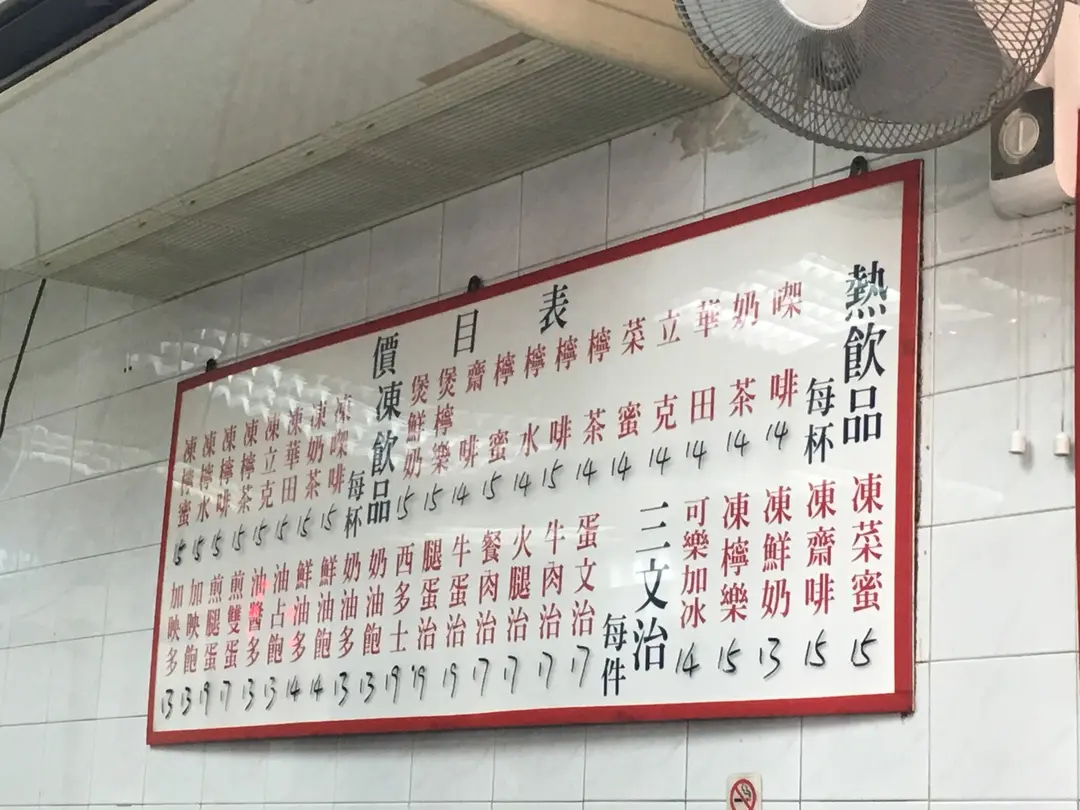 價目表
熱飲品 每杯
㗎啡 14
奶茶 14
華田 14
立克 14
菜蜜 14
檸茶 14
檸啡 15
檸水 14
檸蜜 15
齋啡 14
煲檸樂 15
煲鮮奶 15
凍飲品 每杯
凍㗎啡 15
凍奶茶 15
凍華田 15
凍立克 15
凍檸茶 15
凍檸啡 15
凍檸水 15
凍檸蜜 15
凍菜蜜 15
凍齋啡 15
凍鮮奶 13
凍檸樂 15
可樂加冰 14
三文治 每件
蛋文治 17
牛肉治 17
火腿治 17
餐肉治 17
牛蛋治 19
腿蛋治 19
西多士 19
奶油飽 13
奶油多 13
鮮油飽 14
鮮油多 14
油占飽 13
油醬多 13
煎雙蛋 17
煎腿蛋 19
加映飽 13
加映多 13